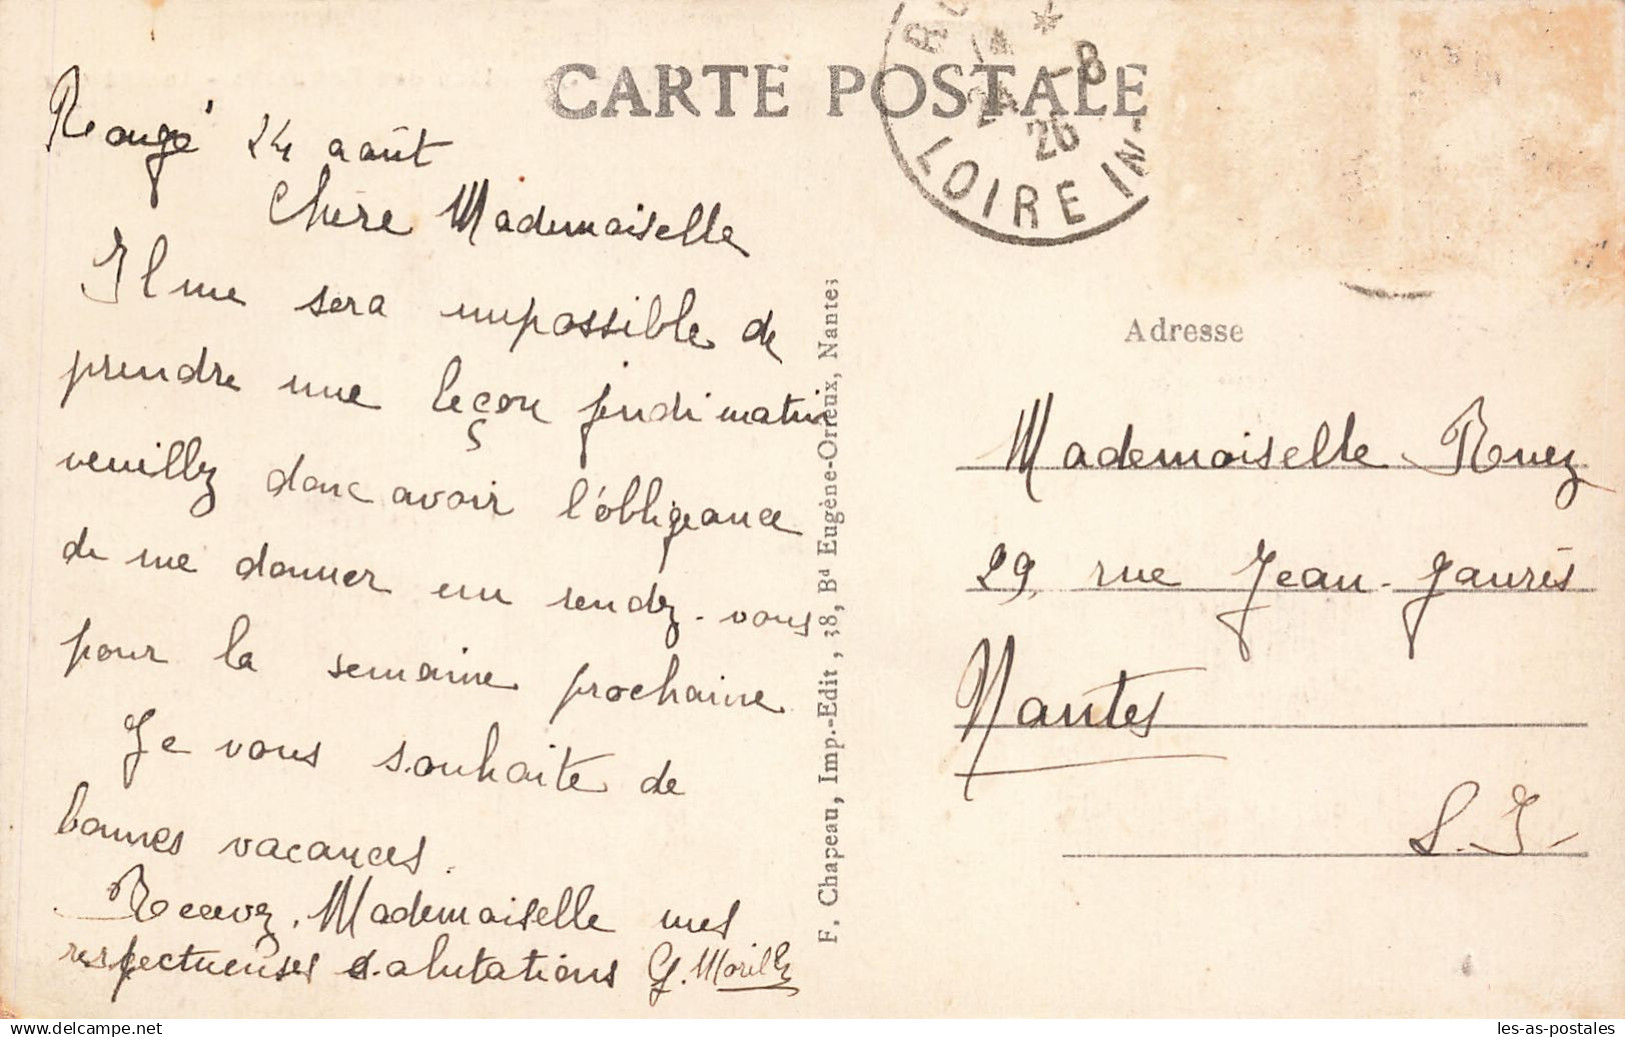 CARTE POSTALE
24 -8
26
LOIRE IN-
Rougé 24 août
Chère Mademoiselle
Il me sera impossible de
prendre une leçon jeudi matin
veuillez donc avoir l'obligeance
de me donner un rendez-vous
pour la semaine prochaine
Je vous souhaite de
bonnes vacances.
Recevez, Mademoiselle mes
respectueuses salutations G.
F. Chapeau, Imp.-Edit., 38, Bd Eugène-Orieux, Nantes
Adresse
Mademoiselle Ruez
29, rue Jean-Jaurès
Nantes
L. I-
les-as-postales.com
les-as-postales